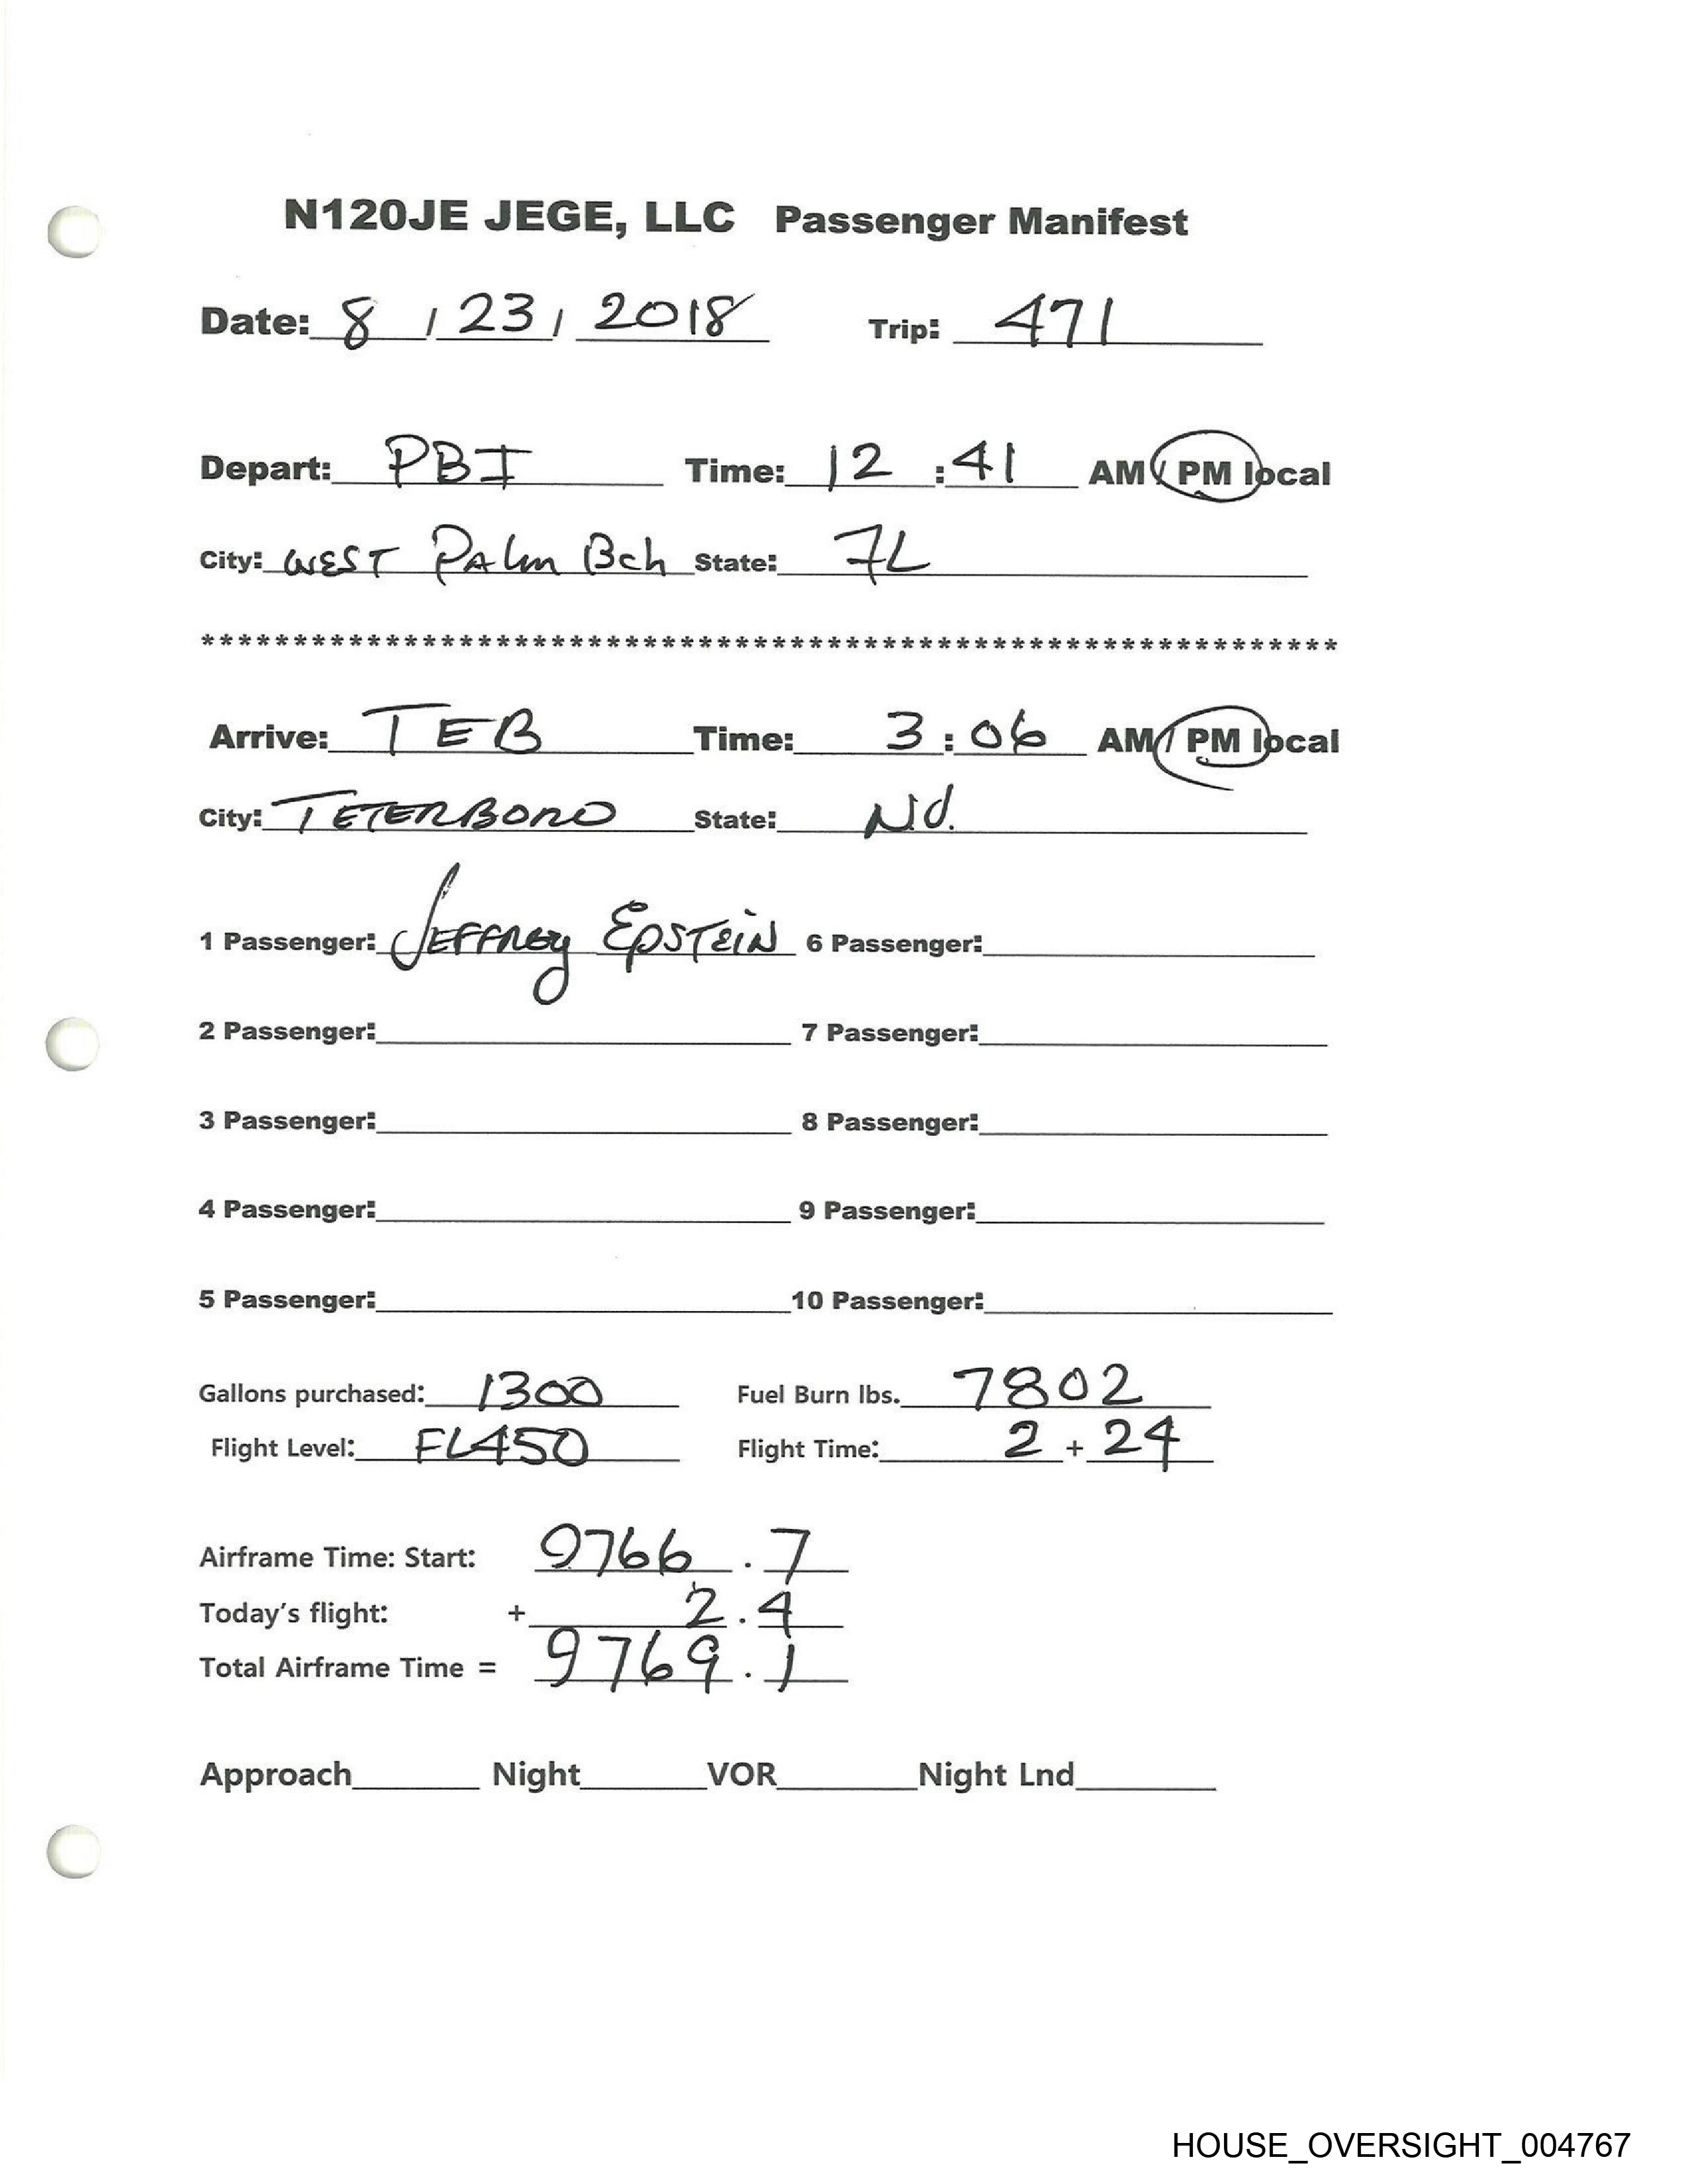 N120JE JEGE, LLC Passenger Manifest
Date: 8 / 23 / 2018 Trip: 471
Depart: PBI Time: 12 : 41 AM / PM local
City: WEST PALm Bch State: FL
**************************************************************
Arrive: TEB Time: 3 : 06 AM / PM local
City: TETERBORO State: N.J.
1 Passenger: JEFFREy EPSTEIN 6 Passenger:
2 Passenger: 7 Passenger:
3 Passenger: 8 Passenger:
4 Passenger: 9 Passenger:
5 Passenger: 10 Passenger:
Gallons purchased: 1300 Fuel Burn lbs. 7802
Flight Level: FL450 Flight Time: 2 + 24
Airframe Time: Start: 9766 . 7
Today's flight: + 2 . 4
Total Airframe Time = 9769 . 1
Approach Night VOR Night Lnd
HOUSE_OVERSIGHT_004767